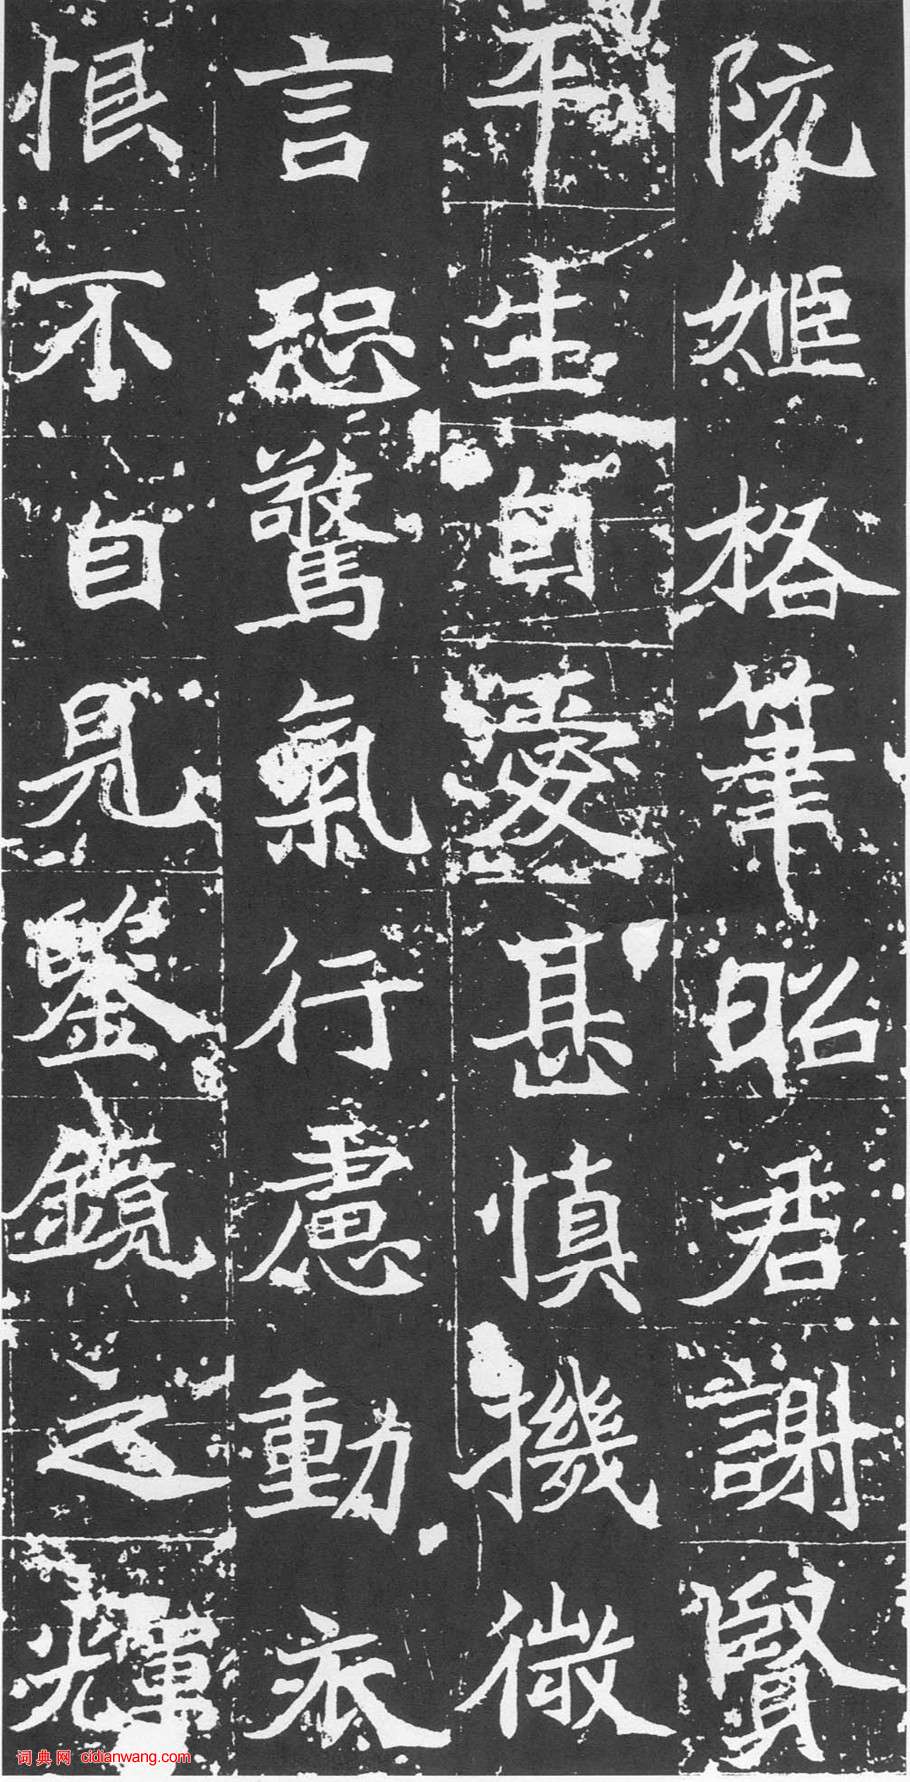 阮姬格筆昭君謝賢
平生自愛甚慎機微
言恐驚氣行慮動衣
恨不自見鑒鏡之輝
词典网 cidianwang.com